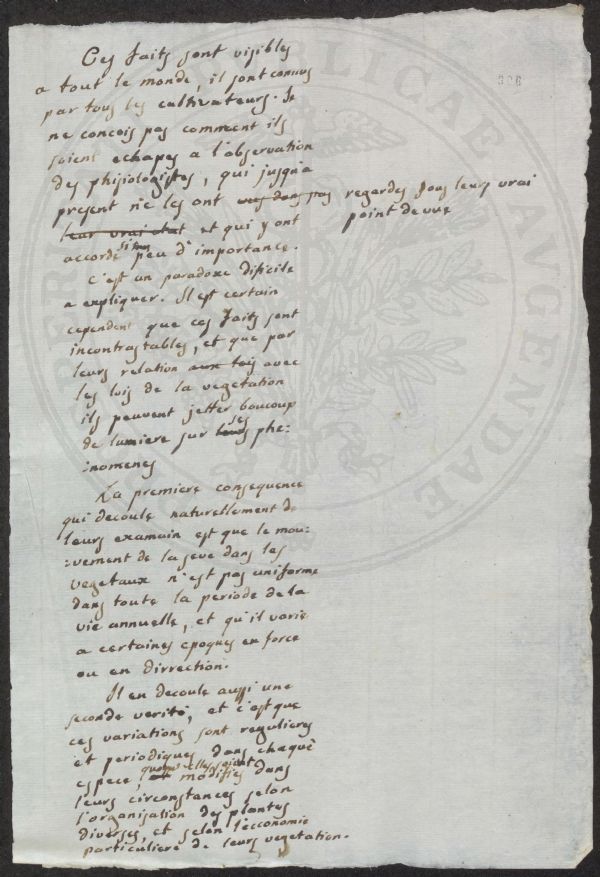 308
Ces faits sont visibles
a tout le monde, il sont connus
par tous les cultivateurs. Je
ne concois pas comment ils
soient echapes a l'observation
des phisiologistes, qui jusqu'a
present n'e les ont vus dans pas regardes sous leurs vrai
point de vue
leur vrai etat et qui y ont
accordé si peu d'importance.
C'est un paradoxe dificile
a expliquer. Il est certain
cependent que ces faits sont
incontrastables, et que par
leurs relation aux lois avec
les lois de la vegetation
ils peuvent jetter boucoup
de lumiere sur leurs ses phe:
:nomenes
La premiere consequence
qui decoule naturellement de
leurs examain est que le mou:
:vement de la seve dans les
vegetaux n'est pas uniforme
dans toute la periode de la
vie annuelle, et qu'il varie
a certaines epoques en force
ou en dirrection.
Il en decoule aussi une
seconde verité, et c'est que
ces variations sont regulieres
et periodiques dans chaque
espece, quoiqu'elles soient
et modifies dans
leurs circonstances selon
l'organisation des plantes
diverses, et selon l'economie
particuliere de leurs vegetation.